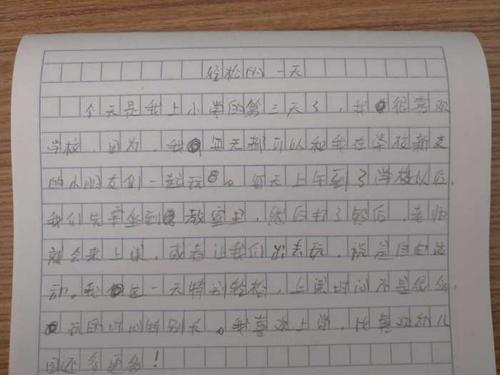 轻松的一天
今天是我上小学的第三天了，我很喜欢
学校，因为，我每天都可以和我在学校新交
的小朋友们一起玩。每天上午到了学校以后，
我们先坐到教室里，然后打了铃后，老师
就会来上课，或者让我们出去玩，说是自由活
动。我这一天特别轻松，上课时间不是很多，
玩的时间特别长。我喜欢上学，比喜欢幼儿
园还多更多！